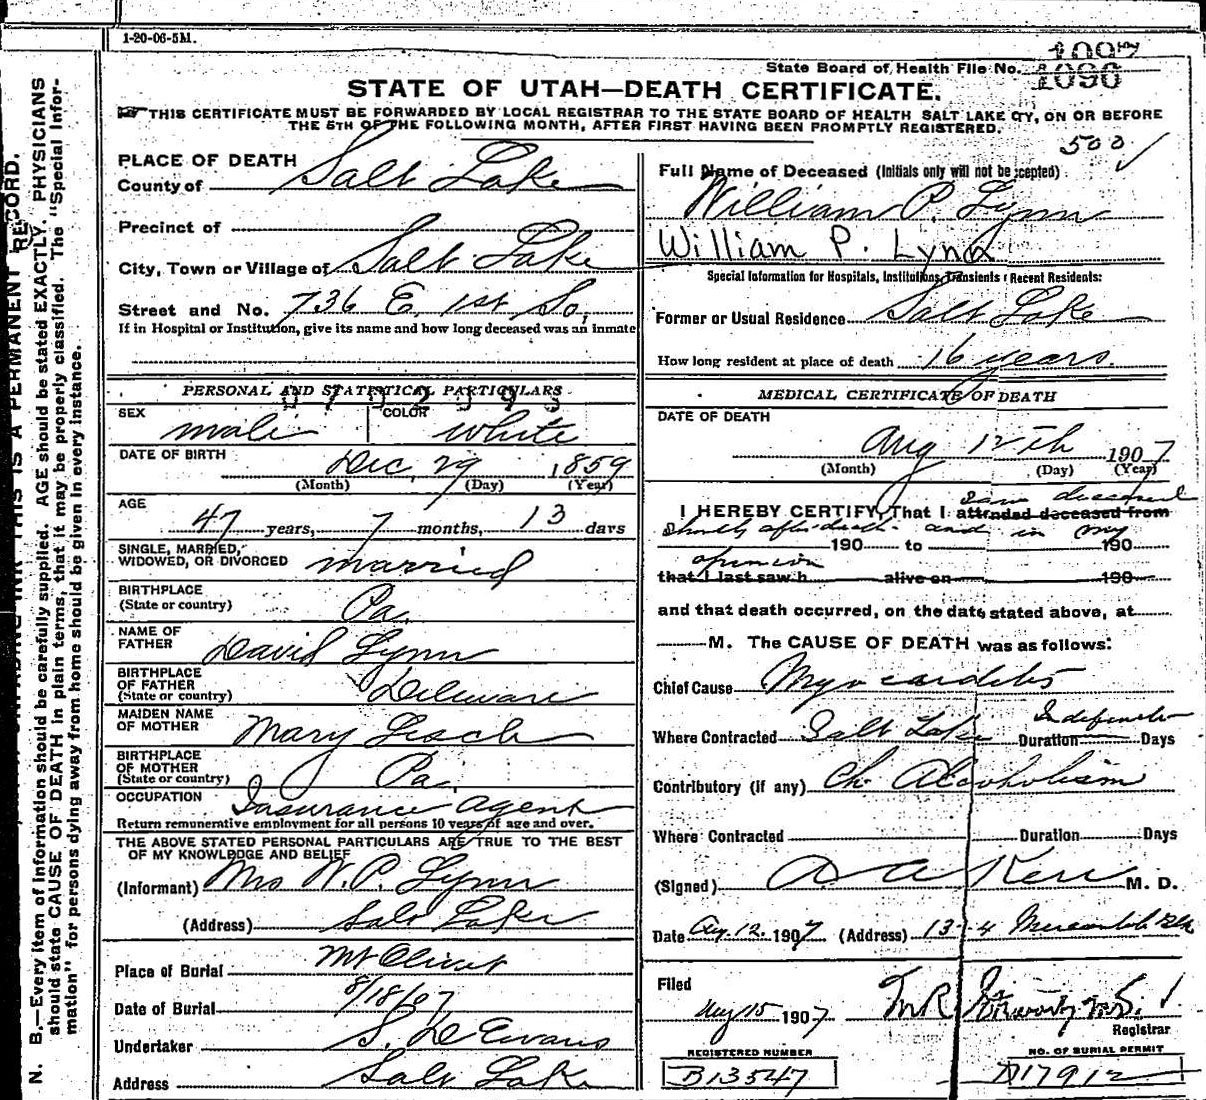 1-20-06-5M.
State Board of Health File No. 1096
STATE OF UTAH—DEATH CERTIFICATE.
THIS CERTIFICATE MUST BE FORWARDED BY LOCAL REGISTRAR TO THE STATE BOARD OF HEALTH SALT LAKE CITY, ON OR BEFORE
THE 5TH OF THE FOLLOWING MONTH, AFTER FIRST HAVING BEEN PROMPTLY REGISTERED.
500
PLACE OF DEATH
County of Salt Lake
Precinct of
City, Town or Village of Salt Lake
Street and No. 736 E. 1st So.
If in Hospital or Institution, give its name and how long deceased was an inmate
PERSONAL AND STATISTICAL PARTICULARS
SEX male COLOR white
DATE OF BIRTH Dec. 29 1859
(Month) (Day) (Year)
AGE
47 years, 7 months, 13 days
SINGLE, MARRIED,
WIDOWED, OR DIVORCED married
BIRTHPLACE
(State or country) Pa.
NAME OF
FATHER David Lynn
BIRTHPLACE
OF FATHER
(State or country) Delaware
MAIDEN NAME
OF MOTHER Mary
BIRTHPLACE
OF MOTHER
(State or country) Pa.
OCCUPATION Insurance agent
Return remunerative employment for all persons 10 years of age and over.
THE ABOVE STATED PERSONAL PARTICULARS ARE TRUE TO THE BEST
OF MY KNOWLEDGE AND BELIEF
(Informant) Mrs W. P. Lynn
(Address) Salt Lake
Place of Burial Mt Olivet
Date of Burial 8/18/07
Undertaker S. D. Evans
Address Salt Lake
Full Name of Deceased (Initials only will not be accepted)
William P. Lynn
William P. Lynn
Special Information for Hospitals, Institutions, Transients, Recent Residents:
Former or Usual Residence Salt Lake
How long resident at place of death 16 years.
MEDICAL CERTIFICATE OF DEATH
DATE OF DEATH
Aug 12th 1907
(Month) (Day) (Year)
saw deceased
I HEREBY CERTIFY, That I attended deceased from
shortly after death and in my
190 to 190
opinion
that I last saw h alive on 190
and that death occurred, on the date stated above, at
M. The CAUSE OF DEATH was as follows:
Chief Cause Myocarditis
Where Contracted Salt Lake Duration Indefinite Days
Contributory (if any) Ch. Alcoholism
Where Contracted Duration Days
(Signed) Kerr M. D.
Date Aug. 12. 1907 (Address) Mercantile Blk
Filed
Aug 15 1907
Registrar
REGISTERED NUMBER
B13547
NO. OF BURIAL PERMIT
D17912
N. B.—Every item of information should be carefully supplied. AGE should be stated EXACTLY. PHYSICIANS
should state CAUSE OF DEATH in plain terms, that it may be properly classified. The "Special Infor-
mation" for persons dying away from home should be given in every instance.
THIS IS A PERMANENT RECORD.